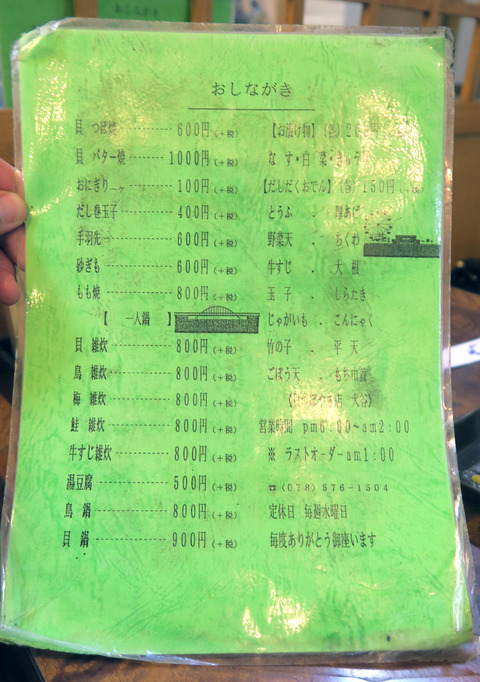 おしながき
貝 つぼ焼 600円(+税)
貝 バター焼 1000円(+税)
おにぎり一ヶ 100円(+税)
だし巻玉子 400円(+税)
手羽先 600円(+税)
砂ぎも 600円(+税)
もも焼 800円(+税)
【 一人鍋 】
貝 雑炊 800円(+税)
鳥 雑炊 800円(+税)
梅 雑炊 800円(+税)
鮭 雑炊 800円(+税)
牛すじ雑炊 800円(+税)
湯豆腐 500円(+税)
鳥 鍋 800円(+税)
貝 鍋 900円(+税)
【お漬け物】(各)
なす・白菜・きゅうり
【だしだくおでん】(各)150円(+税)
とうふ . 厚あげ
野菜天 . ちくわ
牛すじ . 大根
玉子 . しらたき
じゃがいも . こんにゃく
竹の子 . 平天
ごぼう天 . もち巾着
店 大谷》
営業時間 pm6:00~am2:00
※ ラストオーダーam1:00
☎(078)576-1504
定休日 毎週水曜日
毎度ありがとう御座います